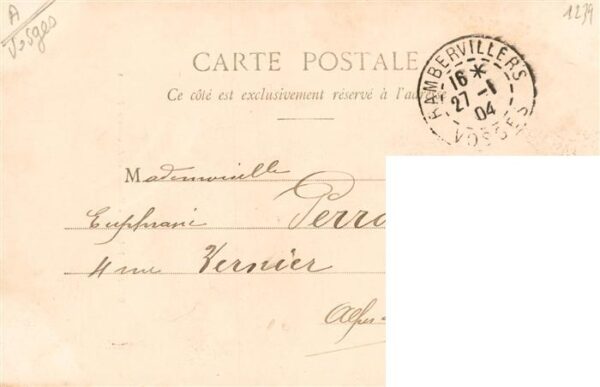 A
Vosges
1239
CARTE POSTALE
Ce côté est exclusivement réservé à l'adresse
RAMBERVILLERS
16 *
27 - 1
04
VOSGES
Mademoiselle
Euphrasie Perro
4 rue Vernier
Alpes-